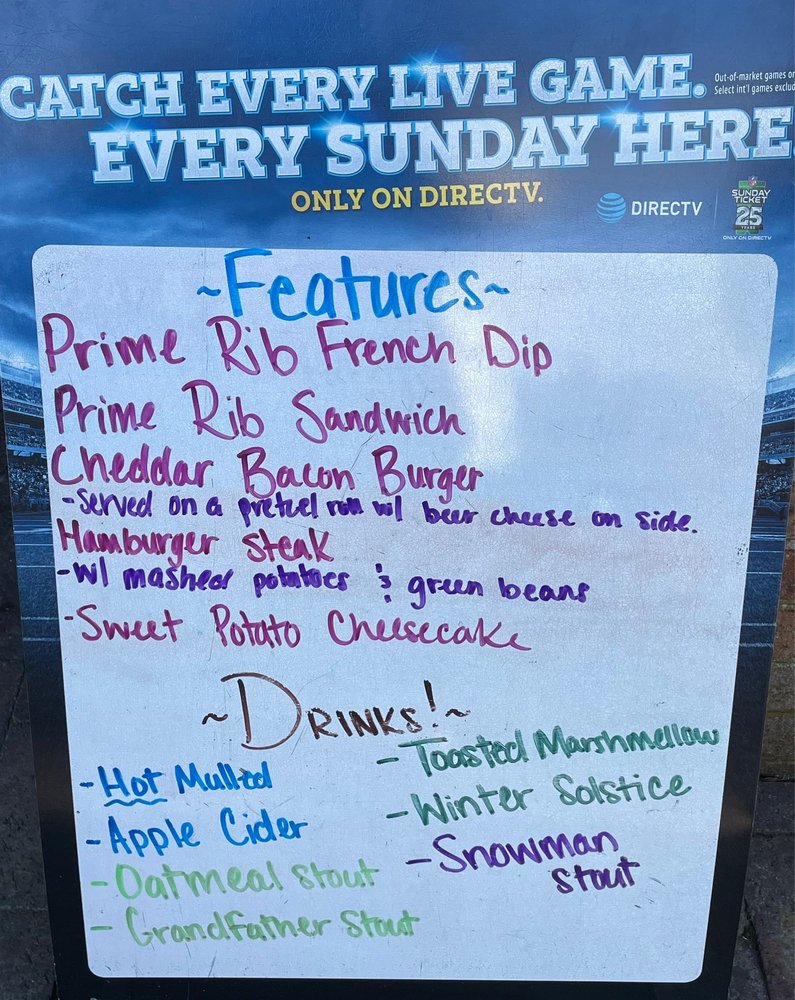 CATCH EVERY LIVE GAME.
Out-of-market games on
Select int'l games exclud
EVERY SUNDAY HERE
ONLY ON DIRECTV.
DIRECTV
NFL
SUNDAY
TICKET
25
YEARS
ONLY ON DIRECTV
~Features~
Prime Rib French Dip
Prime Rib Sandwich
Cheddar Bacon Burger
-served on a pretzel roll w/ beer cheese on side.
Hamburger steak
-w/ mashed potatoes & green beans
-Sweet Potato Cheesecake
~DRINKS!~
-Hot Mulled
-Apple Cider
-Oatmeal stout
-Grandfather Stout
-Toasted Marshmellow
-Winter Solstice
-Snowman
stout